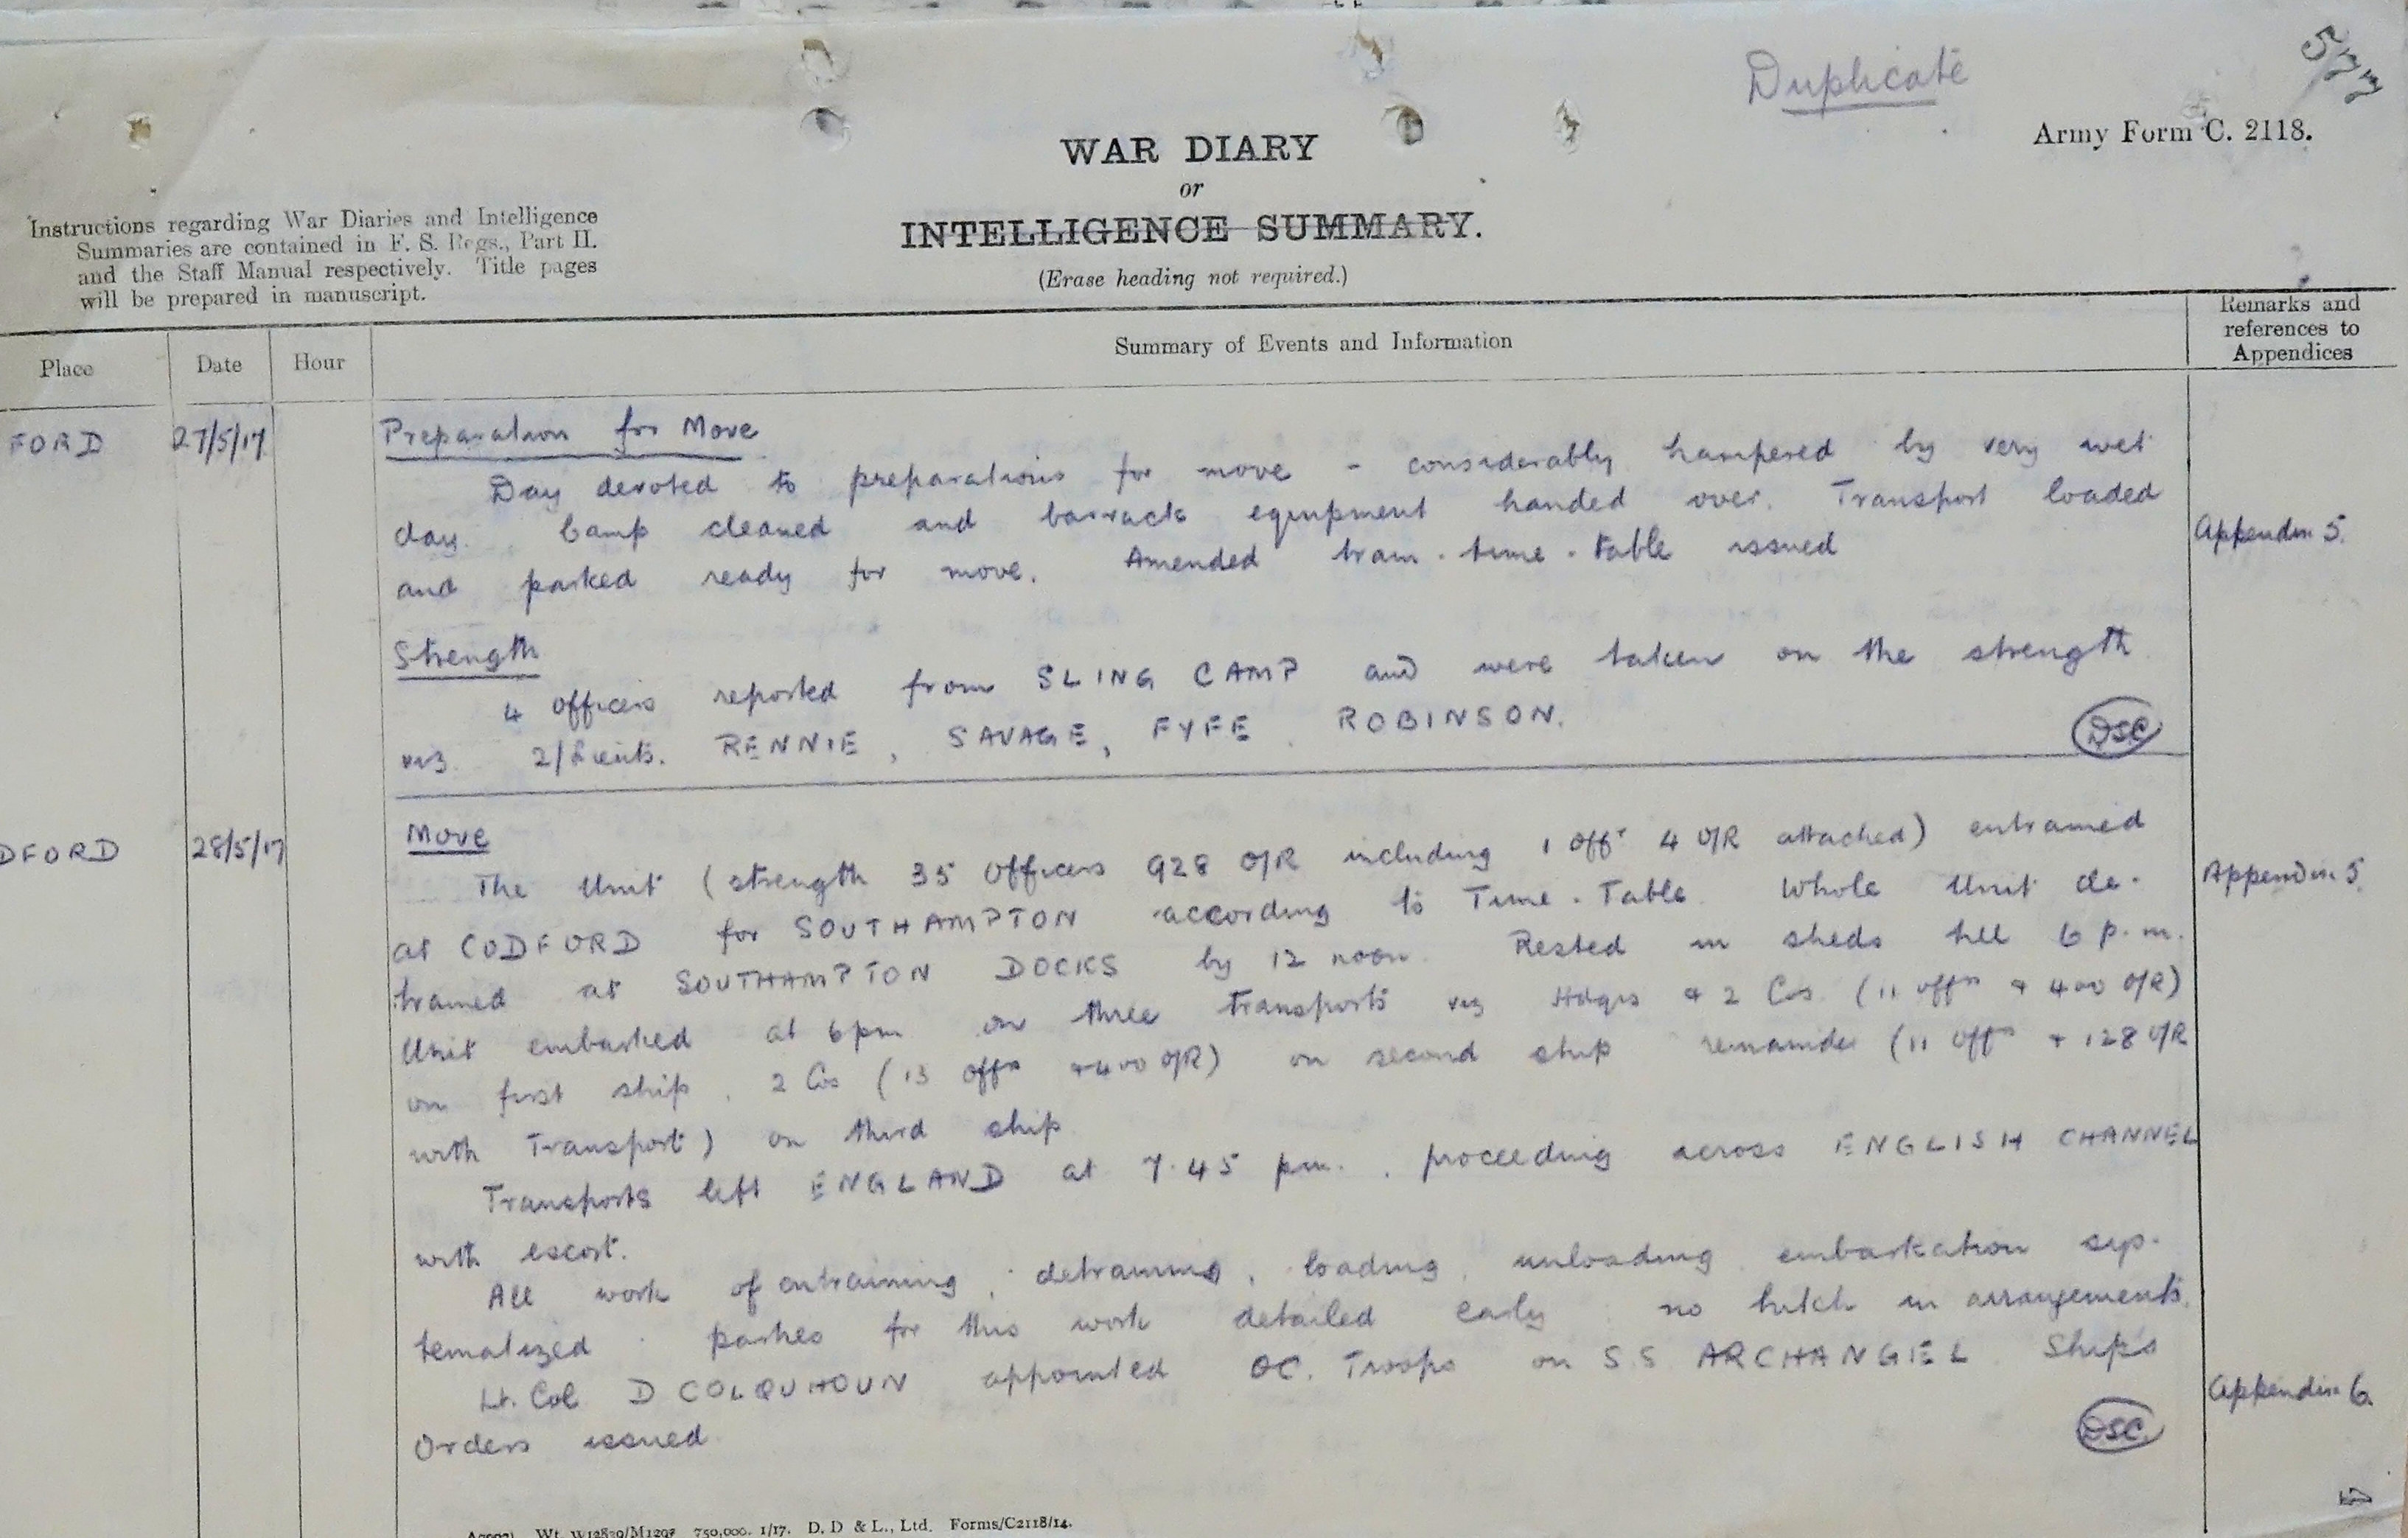 Duplicate
5/77
Army Form C. 2118.
WAR DIARY
or
INTELLIGENCE SUMMARY.
(Erase heading not required.)
Instructions regarding War Diaries and Intelligence
Summaries are contained in F. S. Regs., Part II.
and the Staff Manual respectively. Title pages
will be prepared in manuscript.
Place
Date
Hour
Summary of Events and Information
Remarks and
references to
Appendices
FORD 27/5/17 Preparation for Move
Day devoted to preparations for move - considerably hampered by very wet
day. Camp cleaned and barracks equipment handed over. Transport loaded
and parked ready for move. Amended train-time-table issued
Appendix 5.
Strength
4 Officers reported from SLING CAMP and were taken on the strength
viz. 2/Lieuts. RENNIE, SAVAGE, FYFE. ROBINSON.
DSC
DFORD 28/5/17 Move
The Unit (strength 35 Officers 928 O/R including 1 offr 4 O/R attached) entrained
at CODFORD for SOUTHAMPTON according to Time-Table. Whole Unit de-
Appendix 5.
trained at SOUTHAMPTON DOCKS by 12 noon. Rested in sheds till 6 p.m.
Unit embarked at 6pm on three transports viz Hdqrs & 2 Cos. (11 offrs & 400 O/R)
on first ship. 2 Cos (13 offrs & 400 O/R) on second ship remainder (11 offrs + 128 O/R
with Transport) on third ship
Transports left ENGLAND at 7.45 pm., proceeding across ENGLISH CHANNEL
with escort.
All work of entraining, detraining, loading, unloading embarkation sys-
tematized. parties for this work detailed early no hitch in arrangements.
Lt. Col D COLQUHOUN appointed OC. Troops on S.S ARCHANGEL Ship's
Orders issued
Appendix 6.
DSC
Wt. W12839/M1297 750,000. 1/17. D. D & L., Ltd. Forms/C2118/14.